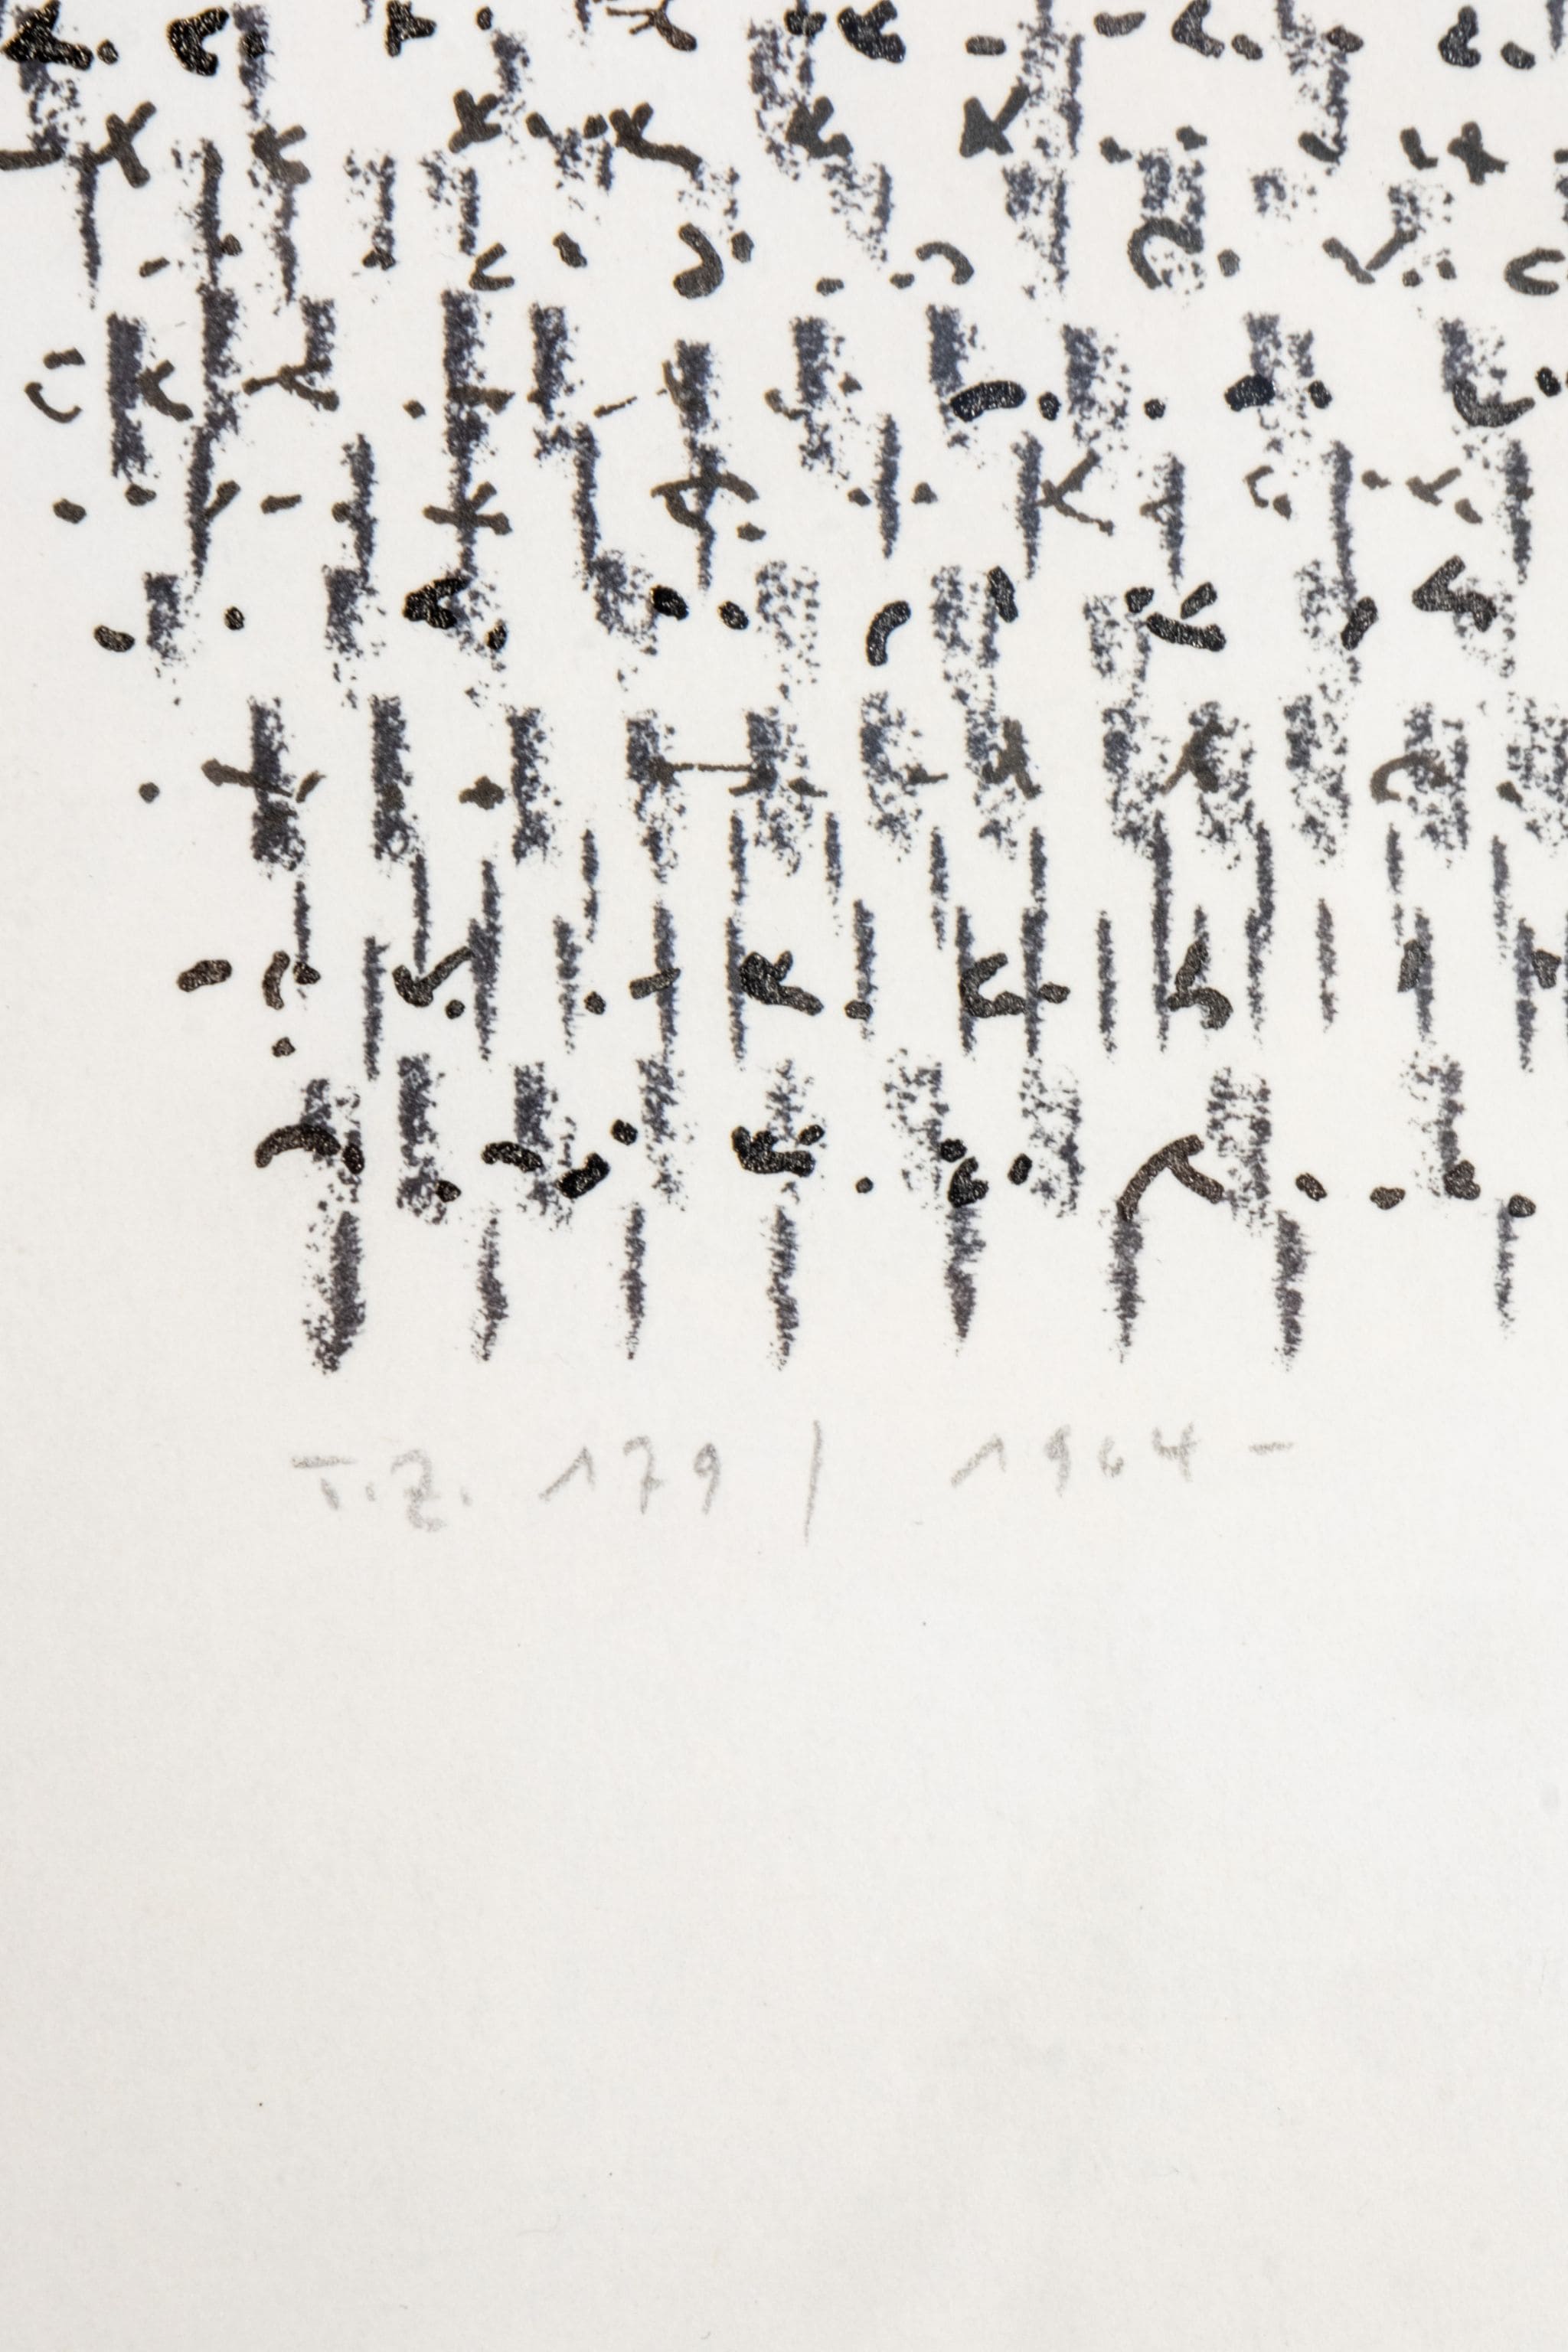 T.Z. 179 / 1964 -